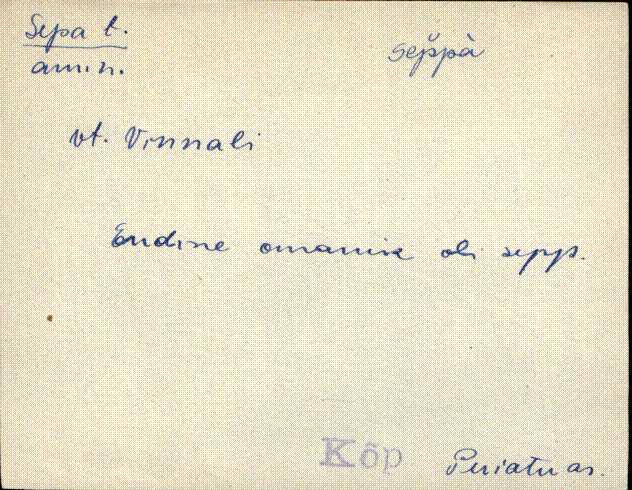 Sepa t.
sep̆pà
amin.
vt. Vinnali
Endine omanik oli sepp.
Kõp
Periatu as.